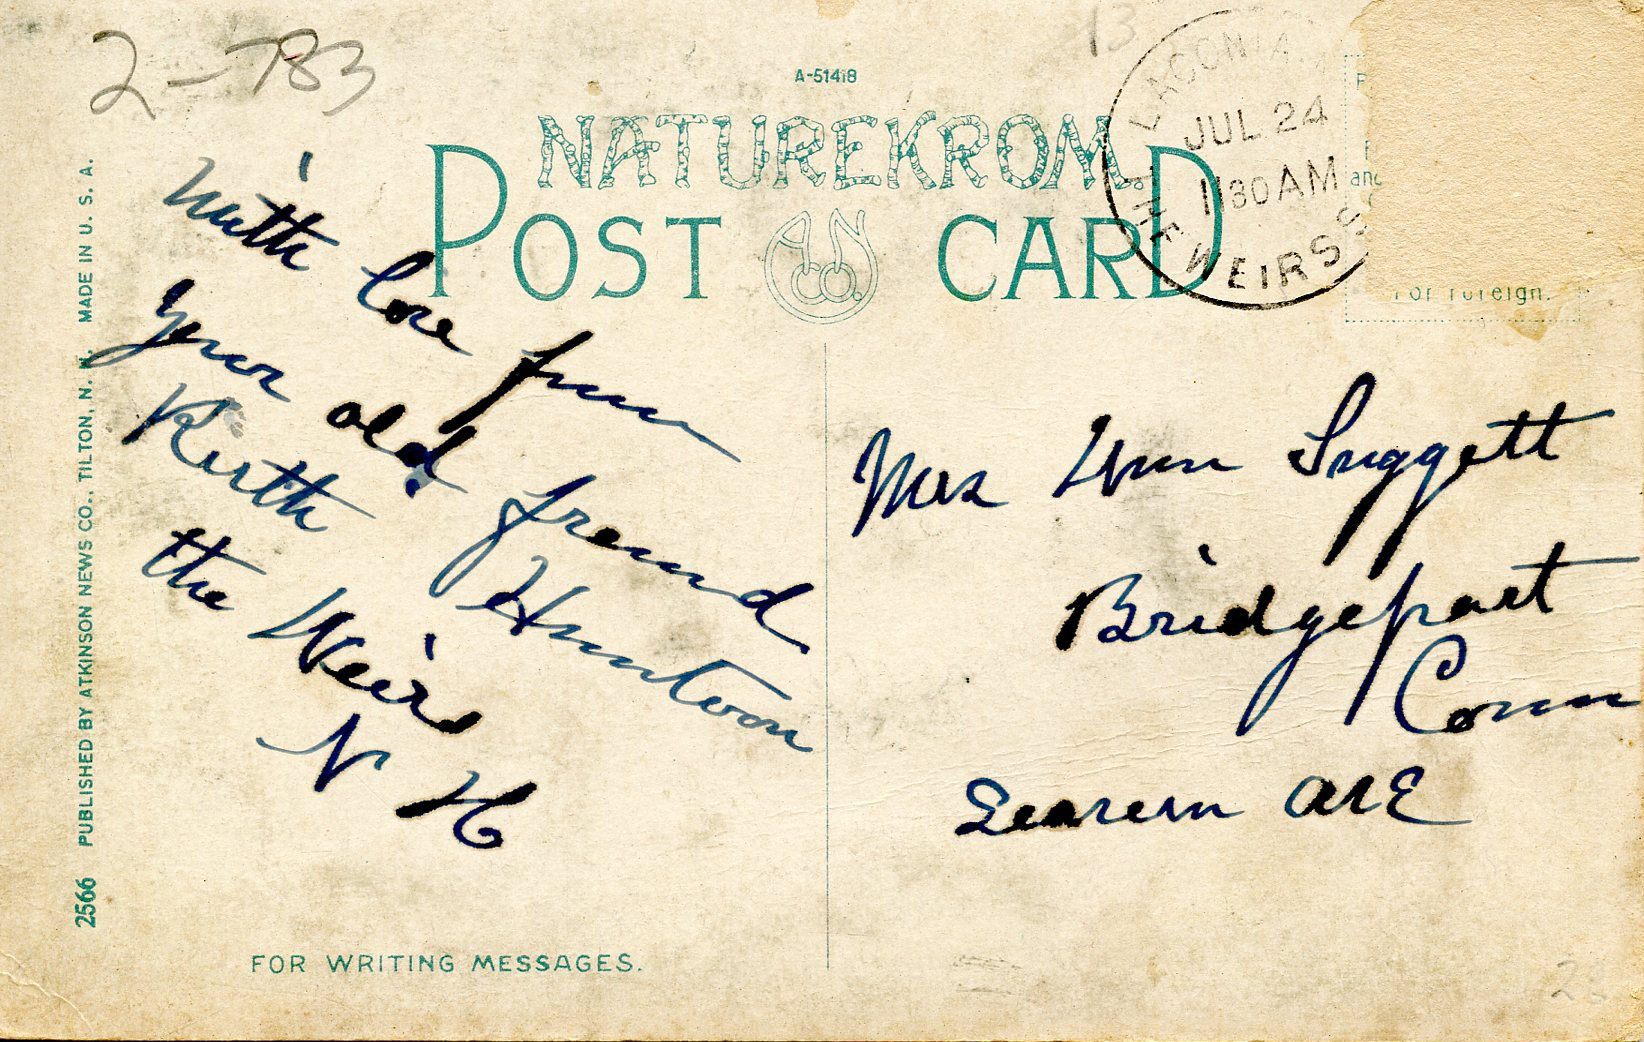 2-783
13
A-51418
NATUREKROM
POST CARD
A N CO.
LACONIA
JUL 24
1130AM
THE WEIRS
and
or foreign.
With love from
your old friend
Ruth Huntoon
the Weirs
N H
Mrs Wm Suggett
Bridgeport
Conn
Seaview Ave
2566 PUBLISHED BY ATKINSON NEWS CO., TILTON, N. H. MADE IN U. S. A.
FOR WRITING MESSAGES.